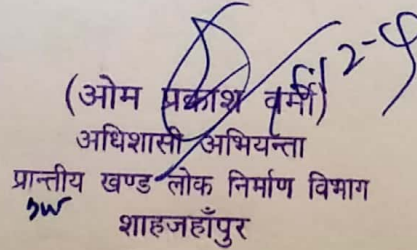 (ओम प्रकाश वर्मा)
अधिशासी अभियन्ता
प्रान्तीय खण्ड लोक निर्माण विभाग
शाहजहाँपुर